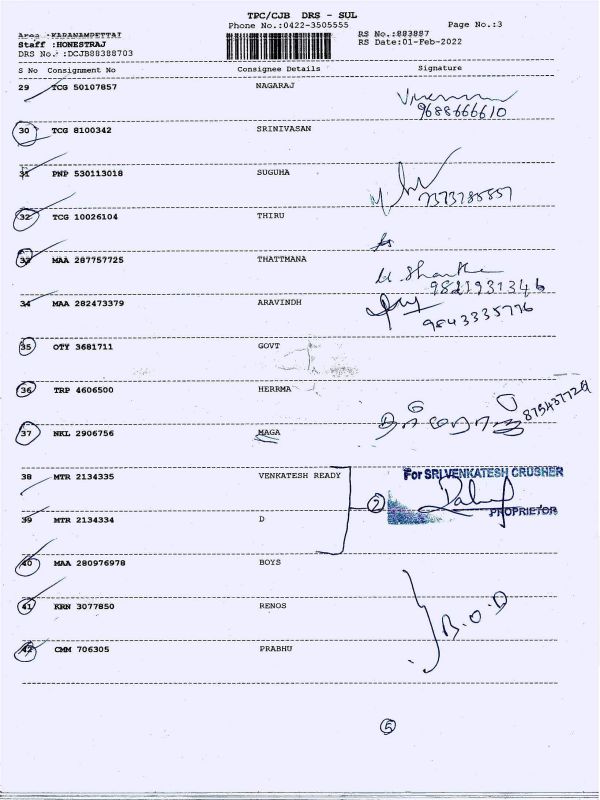 TPC/CJB DRS - SUL
Phone No.:0422-3505555 Page No.:3
Area :KARANAMPETTAI RS No.:883887
Staff :HONESTRAJ RS Date:01-Feb-2022
DRS No.: :DCJB88388703
S No Consignment No Consignee Details Signature
29 TCG 50107857 NAGARAJ
9688666610
30 TCG 8100342 SRINIVASAN
31 PNP 530113018 SUGUHA
7373785557
32 TCG 10026104 THIRU
33 MAA 287757725 THATTMANA
9821931346
34 MAA 282473379 ARAVINDH
9843335776
35 OTY 3681711 GOVT
36 TRP 4606500 HERRMA
37 NKL 2906756 MAGA
38 MTR 2134335 VENKATESH READY
For SRI VENKATESH CRUSHER
2
PROPRIETOR
39 MTR 2134334 D
40 MAA 280976978 BOYS
41 KRN 3077850 RENOS
B.O.D
42 CMM 706305 PRABHU
5